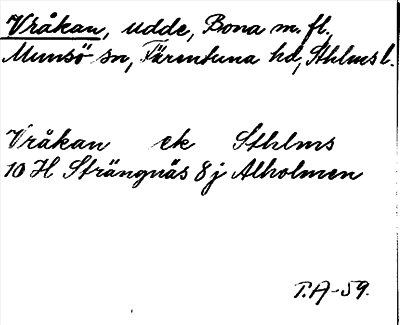 Vråkan, udde, Bona m. fl.,
Munsö sn, Färentuna hd, Sthlms l.
Vråkan ek Sthlms
10 H Strängnäs 8 j Alholmen
T.A-59.